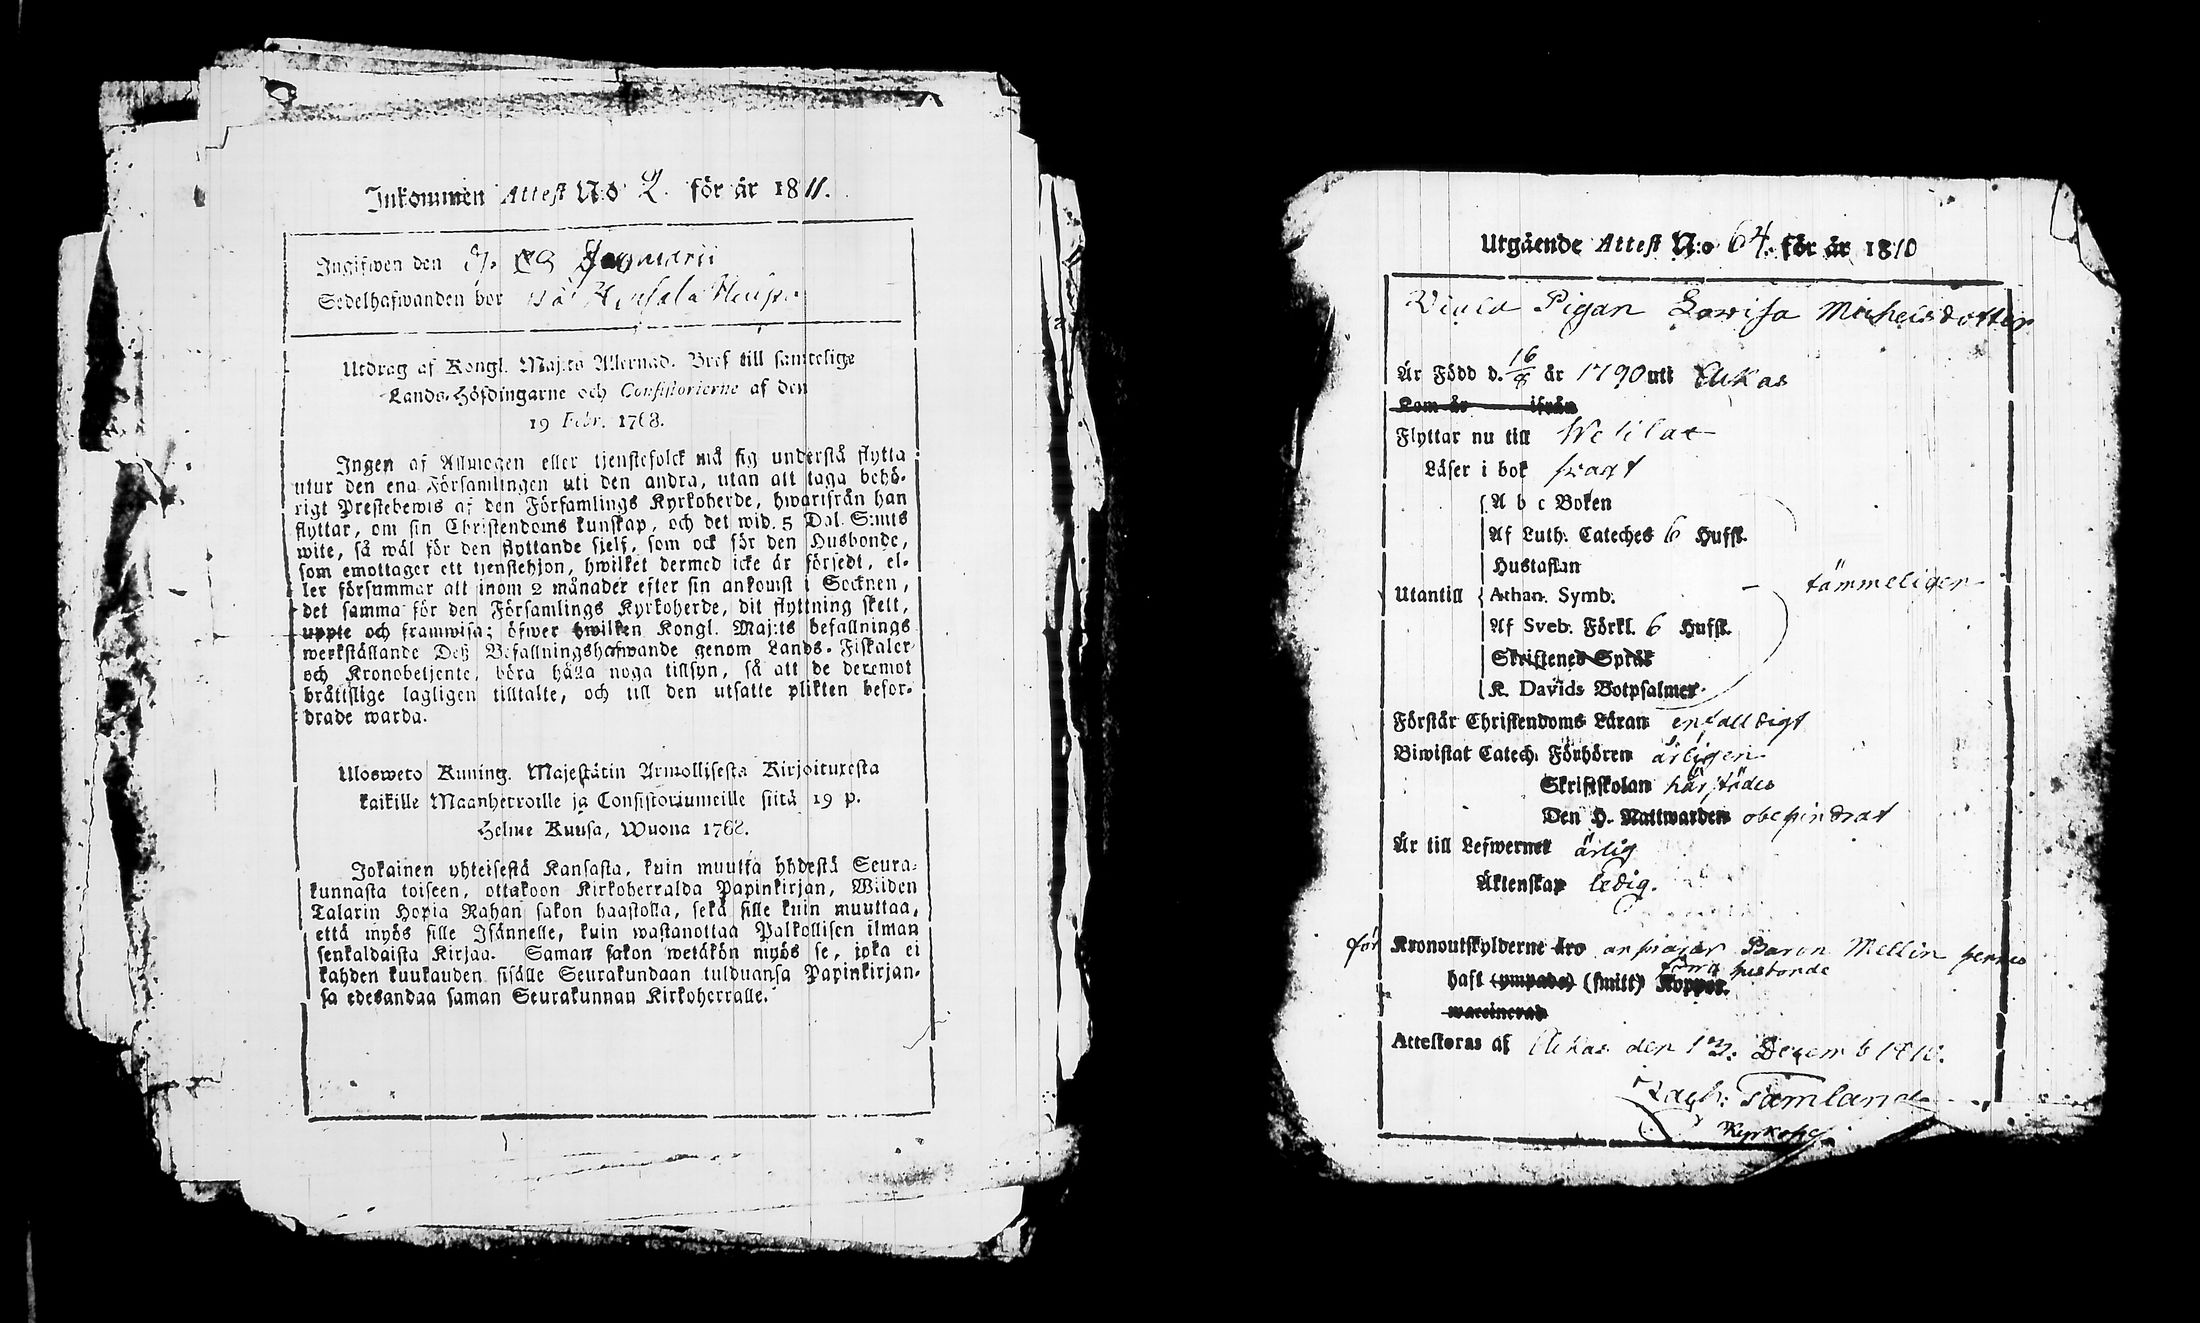 Inkommen Attest N:o 2. för år 1811.
Ingifwen den
Sedelhafwanden bor
Utdrag af Kongl. Maj:ts Allernåd. Bref till samtelige
Lands-Höfdingarne och Consistorierne af den
19 Febr. 1768.
Ingen af Allmogen eller tjenstefolck må sig understå flytta
utur den ena Församlingen uti den andra, utan att taga behö-
rigt Prestebewis af den Församlings Kyrkoherde, hwarifrån han
flyttar, om sin Christendoms kunskap, och det wid. 5 Dal. S:mts
wite, så wäl för den flyttande sjelf, som ock för den Husbonde,
som emottager ett tjenstehjon, hwilket dermed icke är försedt, el-
ler försummar att inom 2 månader efter sin ankomst i Socknen,
det samma för den Församlings Kyrkoherde, dit flyttning skett,
uppte och framwisa; öfwer hwilken Kongl. Maj:ts befallnings
werkställande Deß Befallningshafwande genom Lands-Fiskaler
och Kronobetjente, böra hålla noga tillsyn, så att de deremot
bråttslige lagligen tilltalte, och till den utsatte plikten befor-
drade warda.
Ulosweto Kuning. Majestätin Armollisesta Kirjoituxesta
kaikille Maanherroille ja Consistoriumeille siitä 19 p.
Helme Kuusa, Wuona 1768.
Jokainen yhteisestä Kansasta, kuin muutta yhdestä Seura-
kunnasta toiseen, ottakoon Kirkoherralda Papinkirjan, Wiiden
Talarin Hopia Rahan sakon haastolla, sekä sille kuin muuttaa,
että myös sille Isännelle, kuin wastanottaa Palkollisen ilman
senkaldaista Kirjaa. Saman sakon wetäkön myös se, joka ei
kahden kuukauden sisälle Seurakundaan tulduansa Papinkirjan-
sa edesandaa saman Seurakunnan Kirkoherralle.
Utgående Attest N:o 64. för år 1810
Pigan Lowisa Michelsdotter
Är Född d. 16/8 år 1790 uti Akas
Kom år ifrån
Flyttar nu till
Läser i bok swagt
A b c Boken
Af Luth. Cateches 6 Hufst.
Hustaflan
Utantill Athan. Symb. tämmeligen
Af Sveb. Förkl. 6 Hufst.
Skriftenes Språk
K. Davids Botpsalmer
Förstår Christendoms Läran enfalldigt
Biwistat Catech. Förhören årligen
Skriftskolan härstädes
Den H. Nattwarden obehindrat
Är till Lefwernet ärlig
Äktenskap ledig.
för Kronoutskylderne äro answarar Baron Mellin hennes
förra husbonde
haft (ympade) (smitt) Koppor.
waccinerad
Attesteras af Akas den 13. Decemb 1810.
Zach:
Kyrkoh